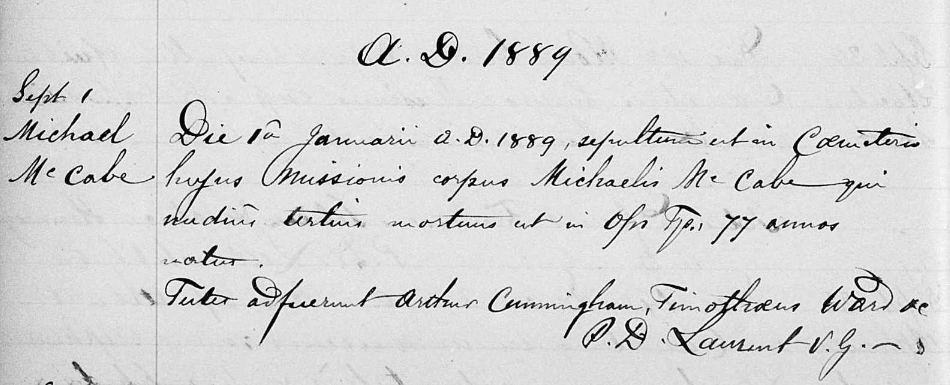 A. D. 1889
Sept 1
Michael
McCabe
Die 1a Januarii A.D. 1889, sepultum est in Cœmeterio
hujus Missionis corpus Michaelis McCabe qui
nudius tertius mortuus est in Ops Tp., 77 annos
natus.
Testes adfuerunt Arthur Cunningham, Timothæus Ward &c
P. D. Laurent V. G.